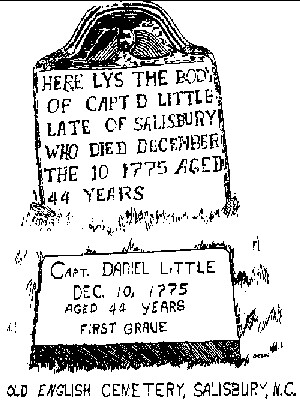 HERE LYS THE BODY
OF CAPT D LITTLE
LATE OF SALISBURY
WHO DIED DECEMBER
THE 10 1775 AGED
44 YEARS
CAPT. DANIEL LITTLE
DEC. 10, 1775
AGED 44 YEARS
FIRST GRAVE
OLD ENGLISH CEMETERY, SALISBURY, N.C.